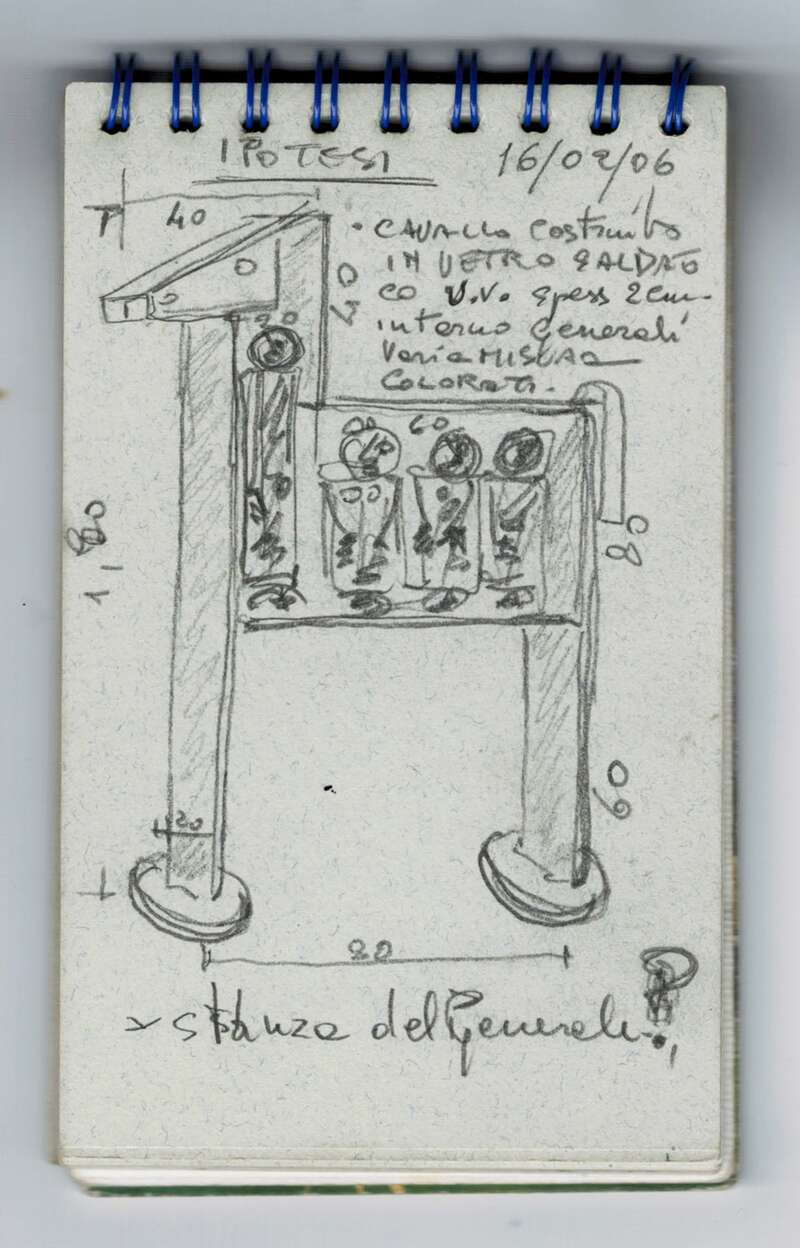 IPOTESI
16/02/06
40
• CAVALLO Costruito
IN VETRO SALDATO
CO U.V. spess 2 cm.
interno Generali
Varia MISURA
COLORATI.
40
60
1,80
80
60
20
80
x stanza del Generale ?